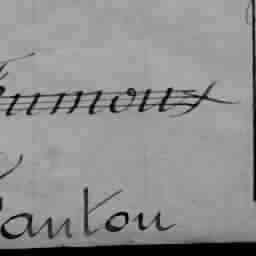 Fumoux
Fanton